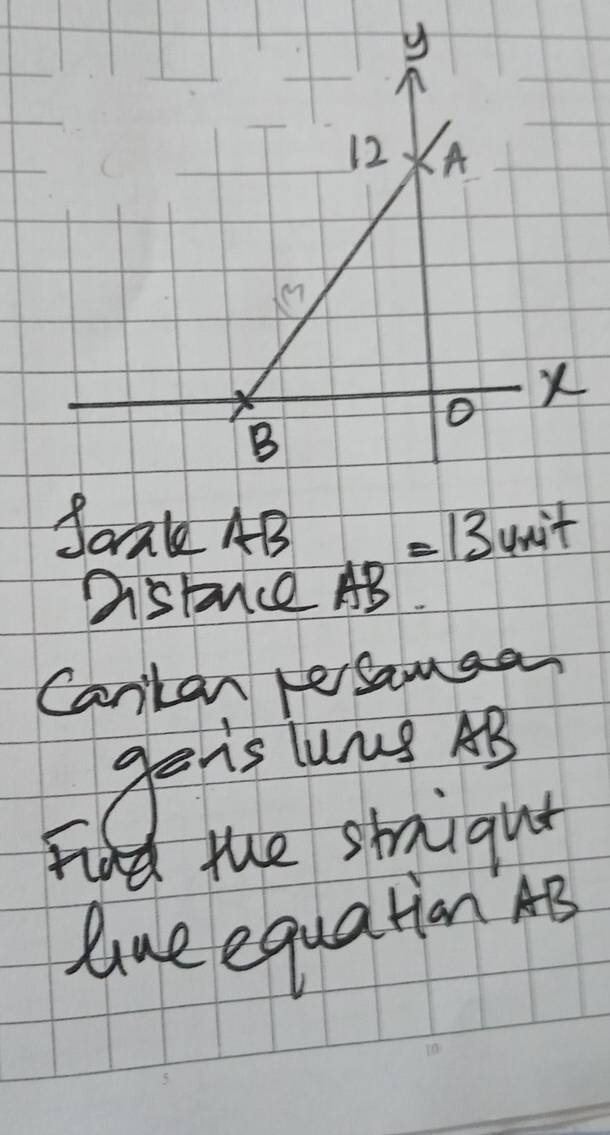 y
12 A
13
x
B O
Jarak AB
= 13 unit
Distance AB.
Carikan persamaan
garis lurus AB
Find the straight
line equation AB
5 10